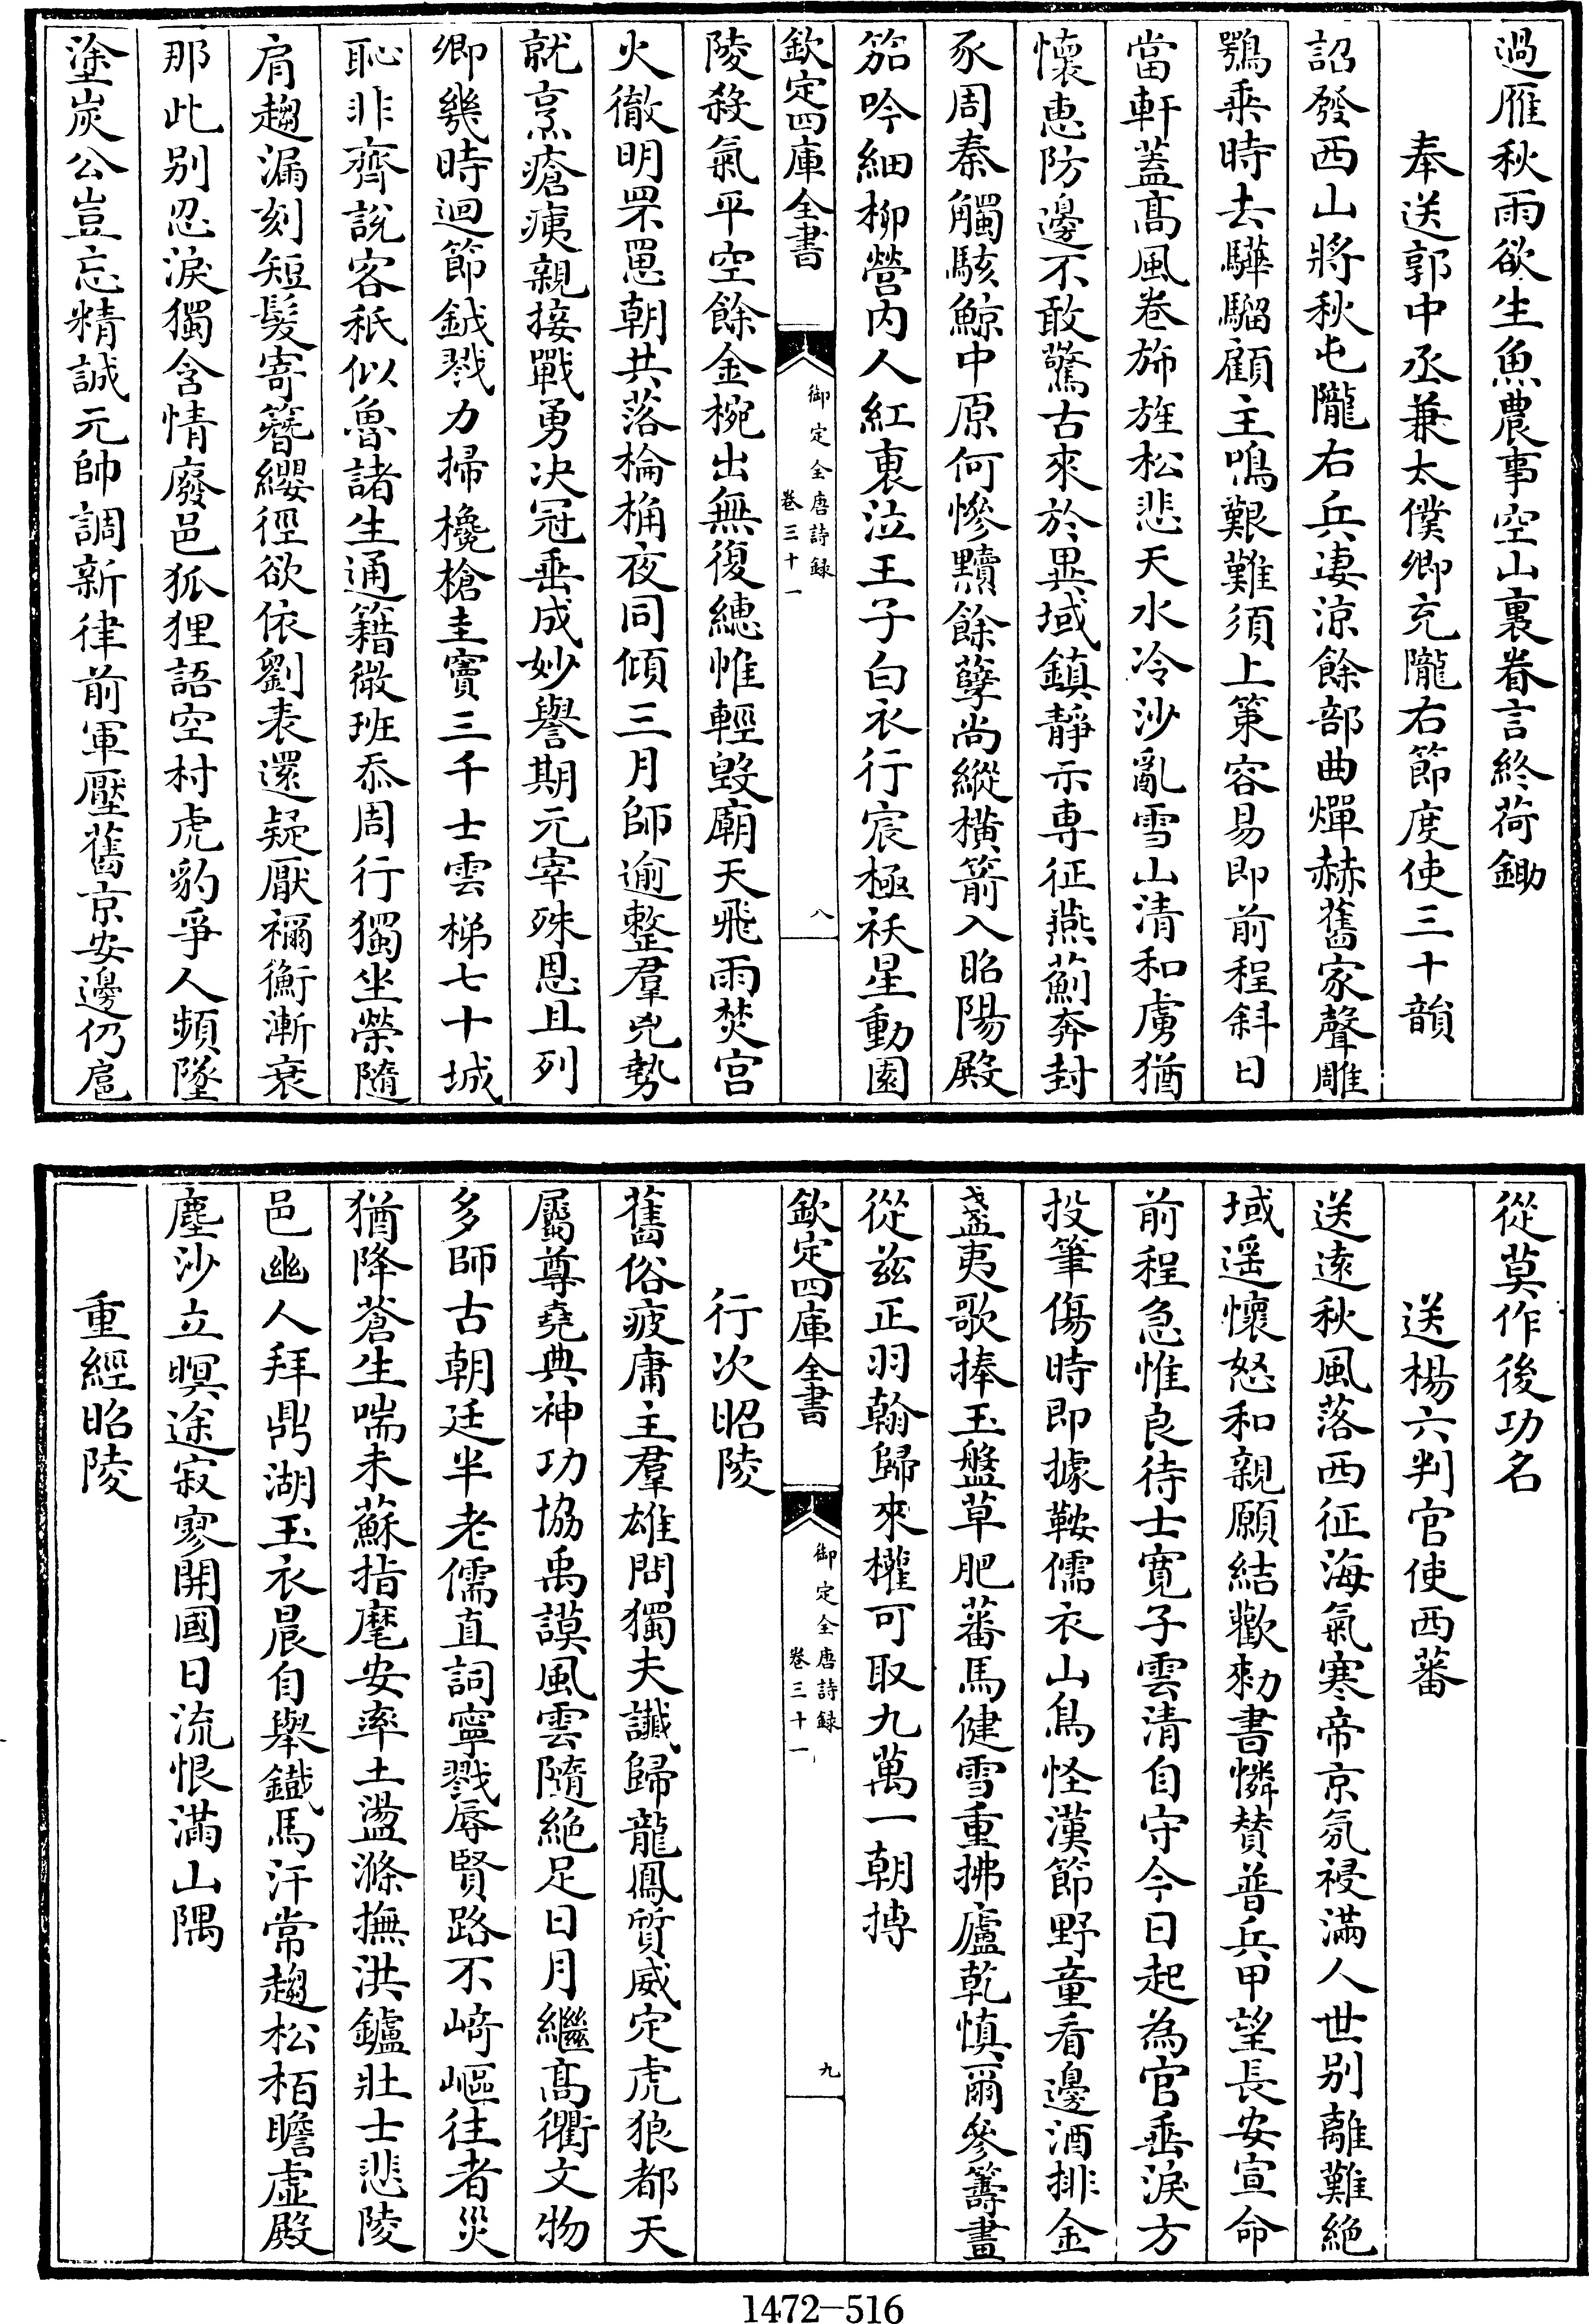 過雁秋雨欲生魚農事空山裏眷言終荷鋤
奉送郭中丞兼太僕卿充隴右節度使三十韻
詔發西山將秋屯隴右兵凄涼餘部曲燀赫舊家聲雕
鶚乘時去驊騮顧主鳴艱難須上策容易即前程斜日
當軒蓋髙風卷斾旌松悲天水冷沙亂雪山清和虜猶
懷惠防邊不敢驚古來於異域鎮靜示専征燕薊奔封
豕周秦觸駭鯨中原何慘黷餘孽尚縱横箭入昭陽殿
笳吟細柳營内人紅褏泣王子白衣行宸極祅星動園
欽定四庫全書
御定全唐詩録
卷三十一
八
陵殺氣平空餘金椀出無復繐帷輕毁廟天飛雨焚宮
火徹明罘罳朝共落棆桷夜同傾三月師逾整羣兇勢
就烹瘡痍親接戰勇决冠垂成妙譽期元宰殊恩且列
卿幾時迴節鉞戮力掃欃槍圭竇三千士雲梯七十城
恥非齊說客秪似魯諸生通籍微班忝周行獨坐榮隨
肩趨漏刻短髮寄簪纓徑欲依劉表還疑厭禰衡漸衰
那此别忍淚獨含情廢邑狐狸語空村虎豹爭人頻墜
塗炭公豈忘精誠元帥調新律前軍壓舊京安邊仍扈
從莫作後功名
送楊六判官使西蕃
送逺秋風落西征海氣寒帝京氛祲滿人世别離難絶
域遥懷怒和親願結歡勅書憐賛普兵甲望長安宣命
前程急惟良待士寛子雲清自守今日起為官垂淚方
投筆傷時即據鞍儒衣山鳥怪漢節野童看邊酒排金
盞夷歌捧玉盤草肥蕃馬健雪重拂廬乾慎爾參籌畫
從兹正羽翰歸來權可取九萬一朝摶
欽定四庫全書
御定全唐詩録
卷三十一
九
行次昭陵
舊俗疲庸主羣雄問獨夫讖歸龍鳳質威定虎狼都天
屬尊堯典神功協禹謨風雲隨絶足日月繼髙衢文物
多師古朝廷半老儒直詞寧戮辱賢路不崎嶇往者災
猶降蒼生喘未蘇指麾安率土盪滌撫洪鑪壯士悲陵
邑幽人拜鼎湖玉衣晨自舉鐵馬汗常趨松栢瞻虚殿
塵沙立暝途寂寥開國日流恨滿山隅
重經昭陵
1472—516